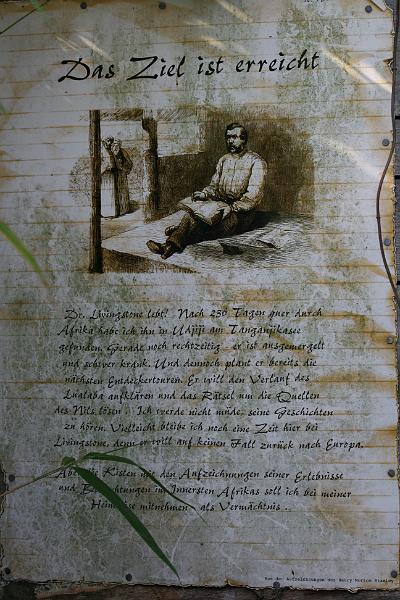 Das Ziel ist erreicht
Dr. Livingstone lebt! Nach 236 Tagen quer durch
Afrika habe ich ihn in Udjiji am Tanganjikasee
gefunden. Gerade noch rechtzeitig - er ist ausgemergelt
und schwer krank. Und dennoch plant er bereits die
nächsten Entdeckertouren. Er will den Verlauf des
Lualaba aufklären und das Rätsel um die Quellen
des Nils lösen. Ich werde nicht müde, seine Geschichten
zu hören. Vielleicht bleibe ich noch eine Zeit hier bei
Livingstone, denn er will auf keinen Fall zurück nach Europa.
Aber die Kisten mit den Aufzeichnungen seiner Erlebnisse
und Beobachtungen im Innersten Afrikas soll ich bei meiner
Heimreise mitnehmen - als Vermächtnis...
Aus den Aufzeichnungen des Henry Morton Stanley